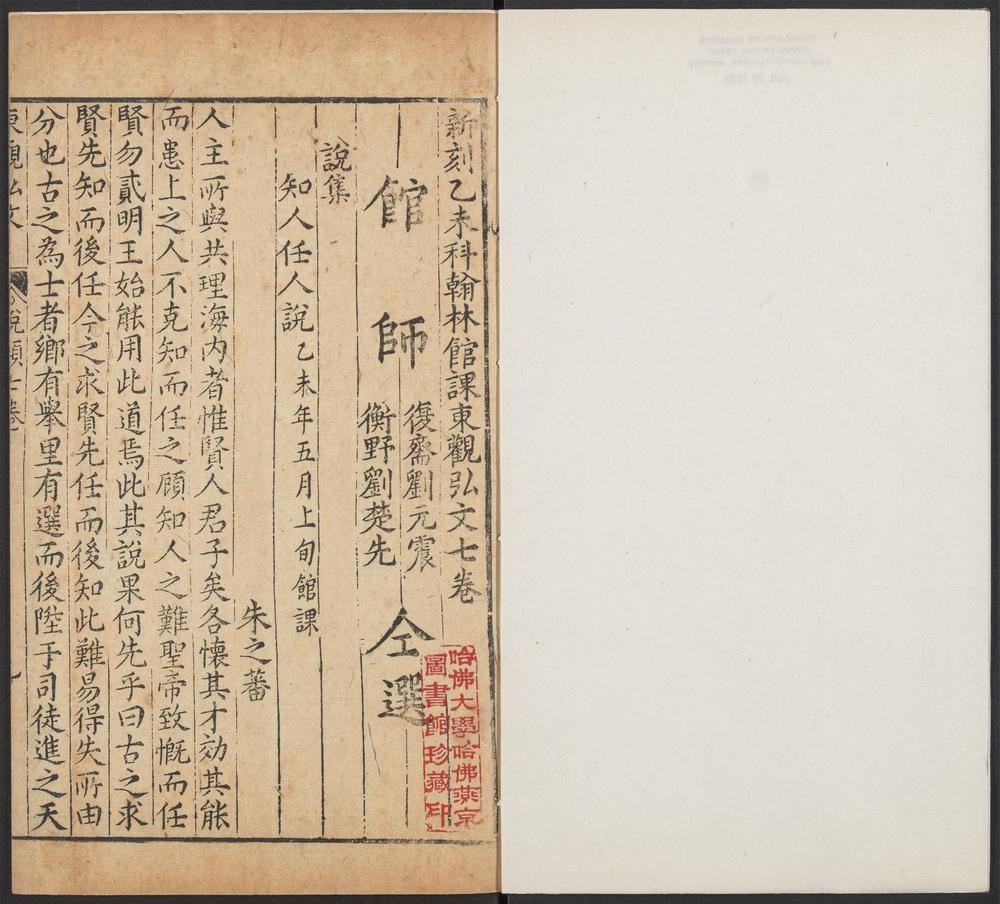 新刻乙未科翰林館課東觀弘文七卷
館師
復齋劉元震
衡野劉楚先
仝選
說集
知人任人說
乙未年五月上旬館課
朱之蕃
人主所與共理海內者惟賢人君子矣各懷其才効其能
而患上之人不克知而任之顧知人之難聖帝致慨而任
賢勿貳明王始能用此道焉此其說果何先乎曰古之求
賢先知而後任今之求賢先任而後知此難易得失所由
分也古之為士者鄉有舉里有選而後陞于司徒進之天
東觀弘文
說類七卷
哈佛大學哈佛燕京
圖書館珍藏印